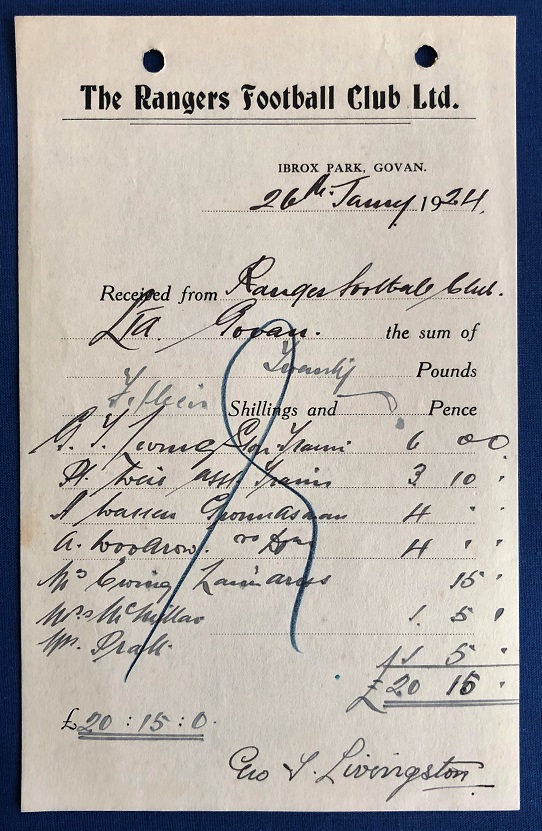 The Rangers Football Club Ltd.
IBROX PARK, GOVAN.
26th Jany. 1924,
Received from Rangers Football Club.
Ltd. Govan. the sum of
Twenty Pounds
Fifteen Shillings and Pence
G. T. Livings Gon Train 6 00 0
R. Weir Asst Train 3 10 "
Warren Groundsman 4 " "
A. Woodrow. " 4 " "
Mrs Ewing 15 "
Mrs McMillan 1. 5 "
Mrs. Pratt
£1 5 "
£20 15 "
£20 : 15 : 0.
Geo T. Livingston.